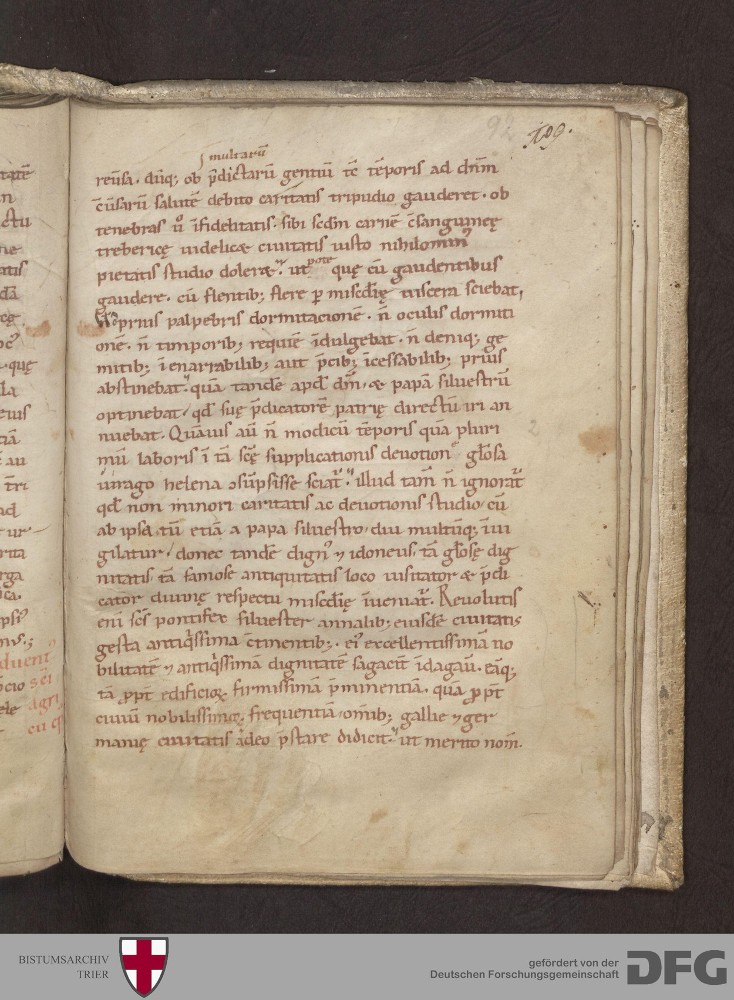 92 100.
multarū
reuſa. dūq; ob p̄dictarū gentiū tc̄ tēporis ad dn̄m
c̄uſarū ſalutē debito caritatis tripudio gauderet. ob
tenebras ū infidelitatis. ſibi ſcd̄m carnē c̄ſanguineę
trebericę uidelicæ ciuitatis iuſto nihilomin᷒
pietatis ſtudio doleræ. utpote quę cū gaudentibus
gaudere. cū flentib; flere p̱ miſcd̄ię uiſcera ſciebat,
oprius palpebris dormitationē. n̄ oculis dormiti
onē. n̄ timporib; requiē īdulgebat. n̄ deniq; ge
mitib; īenarrabilib; aut p̄cib; īceſſabilib; prius
abſtinebat. quā tandē apd̄ dn̄m & papā ſilueſtrū
optinebat, qd̄ ſuę p̄dicatorē patrię directū iri an
nuebat. Quāuis aū n̄ modicū tēporis quā pluri
mū laboris ī tā ſcę̄ ſupplicationis deuotione gl̄oſa
uirago helena ↄſūpſiſſe ſciat᷒. illud tam̄ n̄ ignorat᷒
qd̄ non minori caritatis ac deuotionis ſtudio, cū
ab ipſa tū etiā a papa ſilueſtro, diu multūq; īui
gilatur, donec tandē dign᷒ ⁊ idoneus, tā gl̄oſę dig
nitatis tā famoſe antiquitatis loco uiſitator & p̄di
cator diuinę reſpectu miſcd̄ię īueniat᷒. Reuolutis
eni ſc̄s pontifex ſilueſter annalib; eiuſdē ciuitatis
geſta antiq̇ſſima c̄tinentib;. ei᷒ excellentiſſimā no
bilitatē ⁊ antiq̇ſſimā dignitatē ſagacit̄ īdagau̅. eāq;
tā p̱pt̄ edificioꝝ firmiſſimā p̄minentiā. quā p̱pt̄
ciuiū nobiliſſimoꝝ frequentiā, om̄ib; gallie ⁊ ger
manię ciuitatis adeo p̄ſtare didicit. ut merito nom̄.
BISTUMSARCHIV
TRIER
gefördert von der
Deutschen Forschungsgemeinschaft
DFG